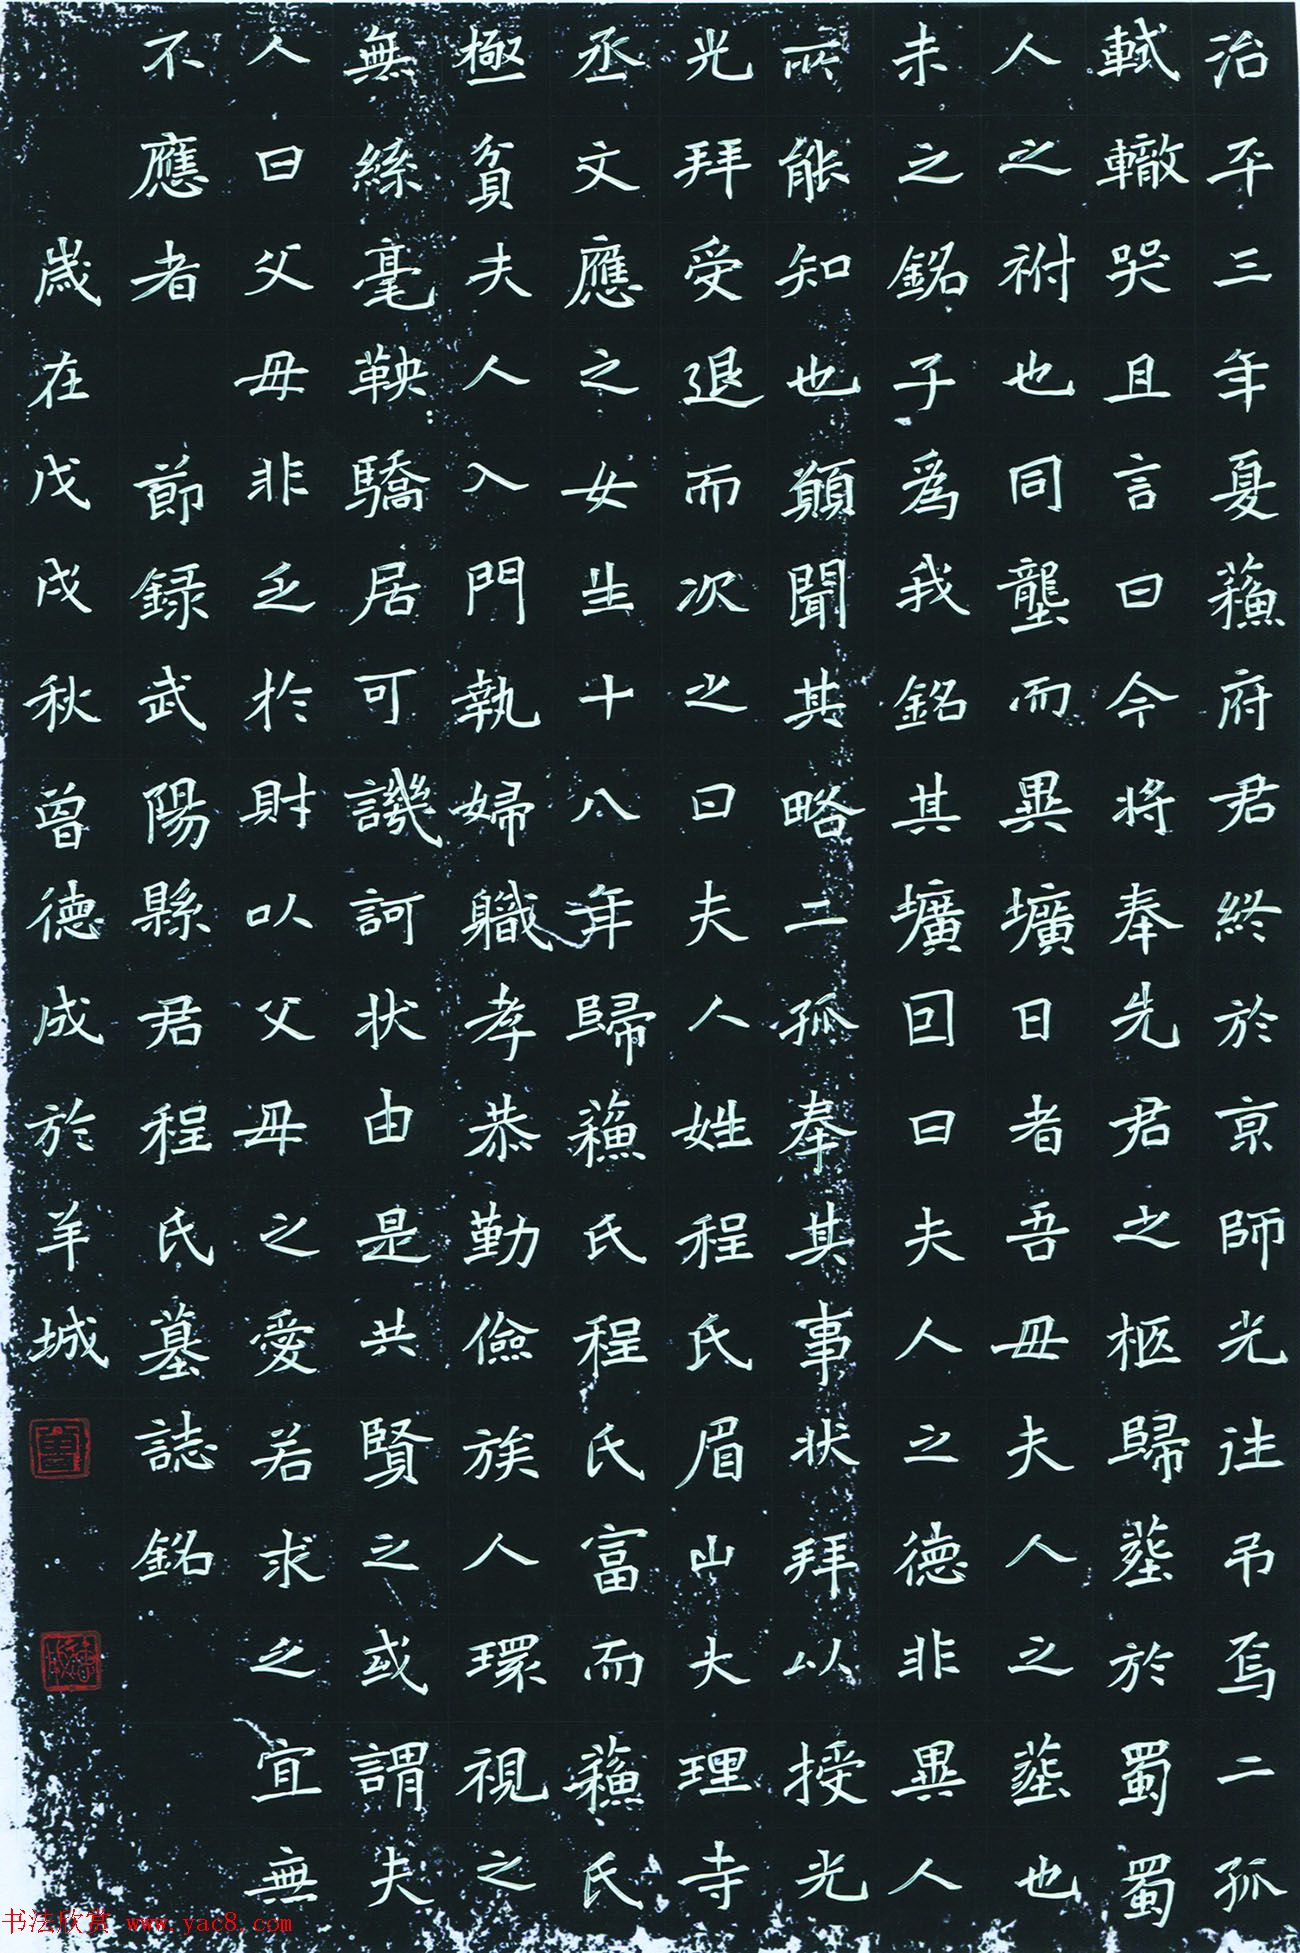 治平三年夏蘓府君終於京師光往吊焉二孤
軾轍哭且言曰今將奉先君之柩歸塟於蜀蜀
人之祔也同壟而異壙日者吾母夫人之塟也
未之銘子為我銘其壙回曰夫人之德非異人
所能知也顓聞其略二孤奉其事状拜以授光
光拜受退而次之曰夫人姓程氏眉山大理寺
丞文應之女生十八年歸蘓氏程氏富而蘓氏
極貧夫人入門執婦職孝恭勤儉族人環視之
無絲毫鞅驕居可譏訶状由是共賢之或謂夫
人曰父母非乏於財以父母之愛若求之宜無
不應者 節録武陽縣君程氏墓誌銘
歲在戊戌秋曾德成於羊城
书法欣赏 www.yac8.com